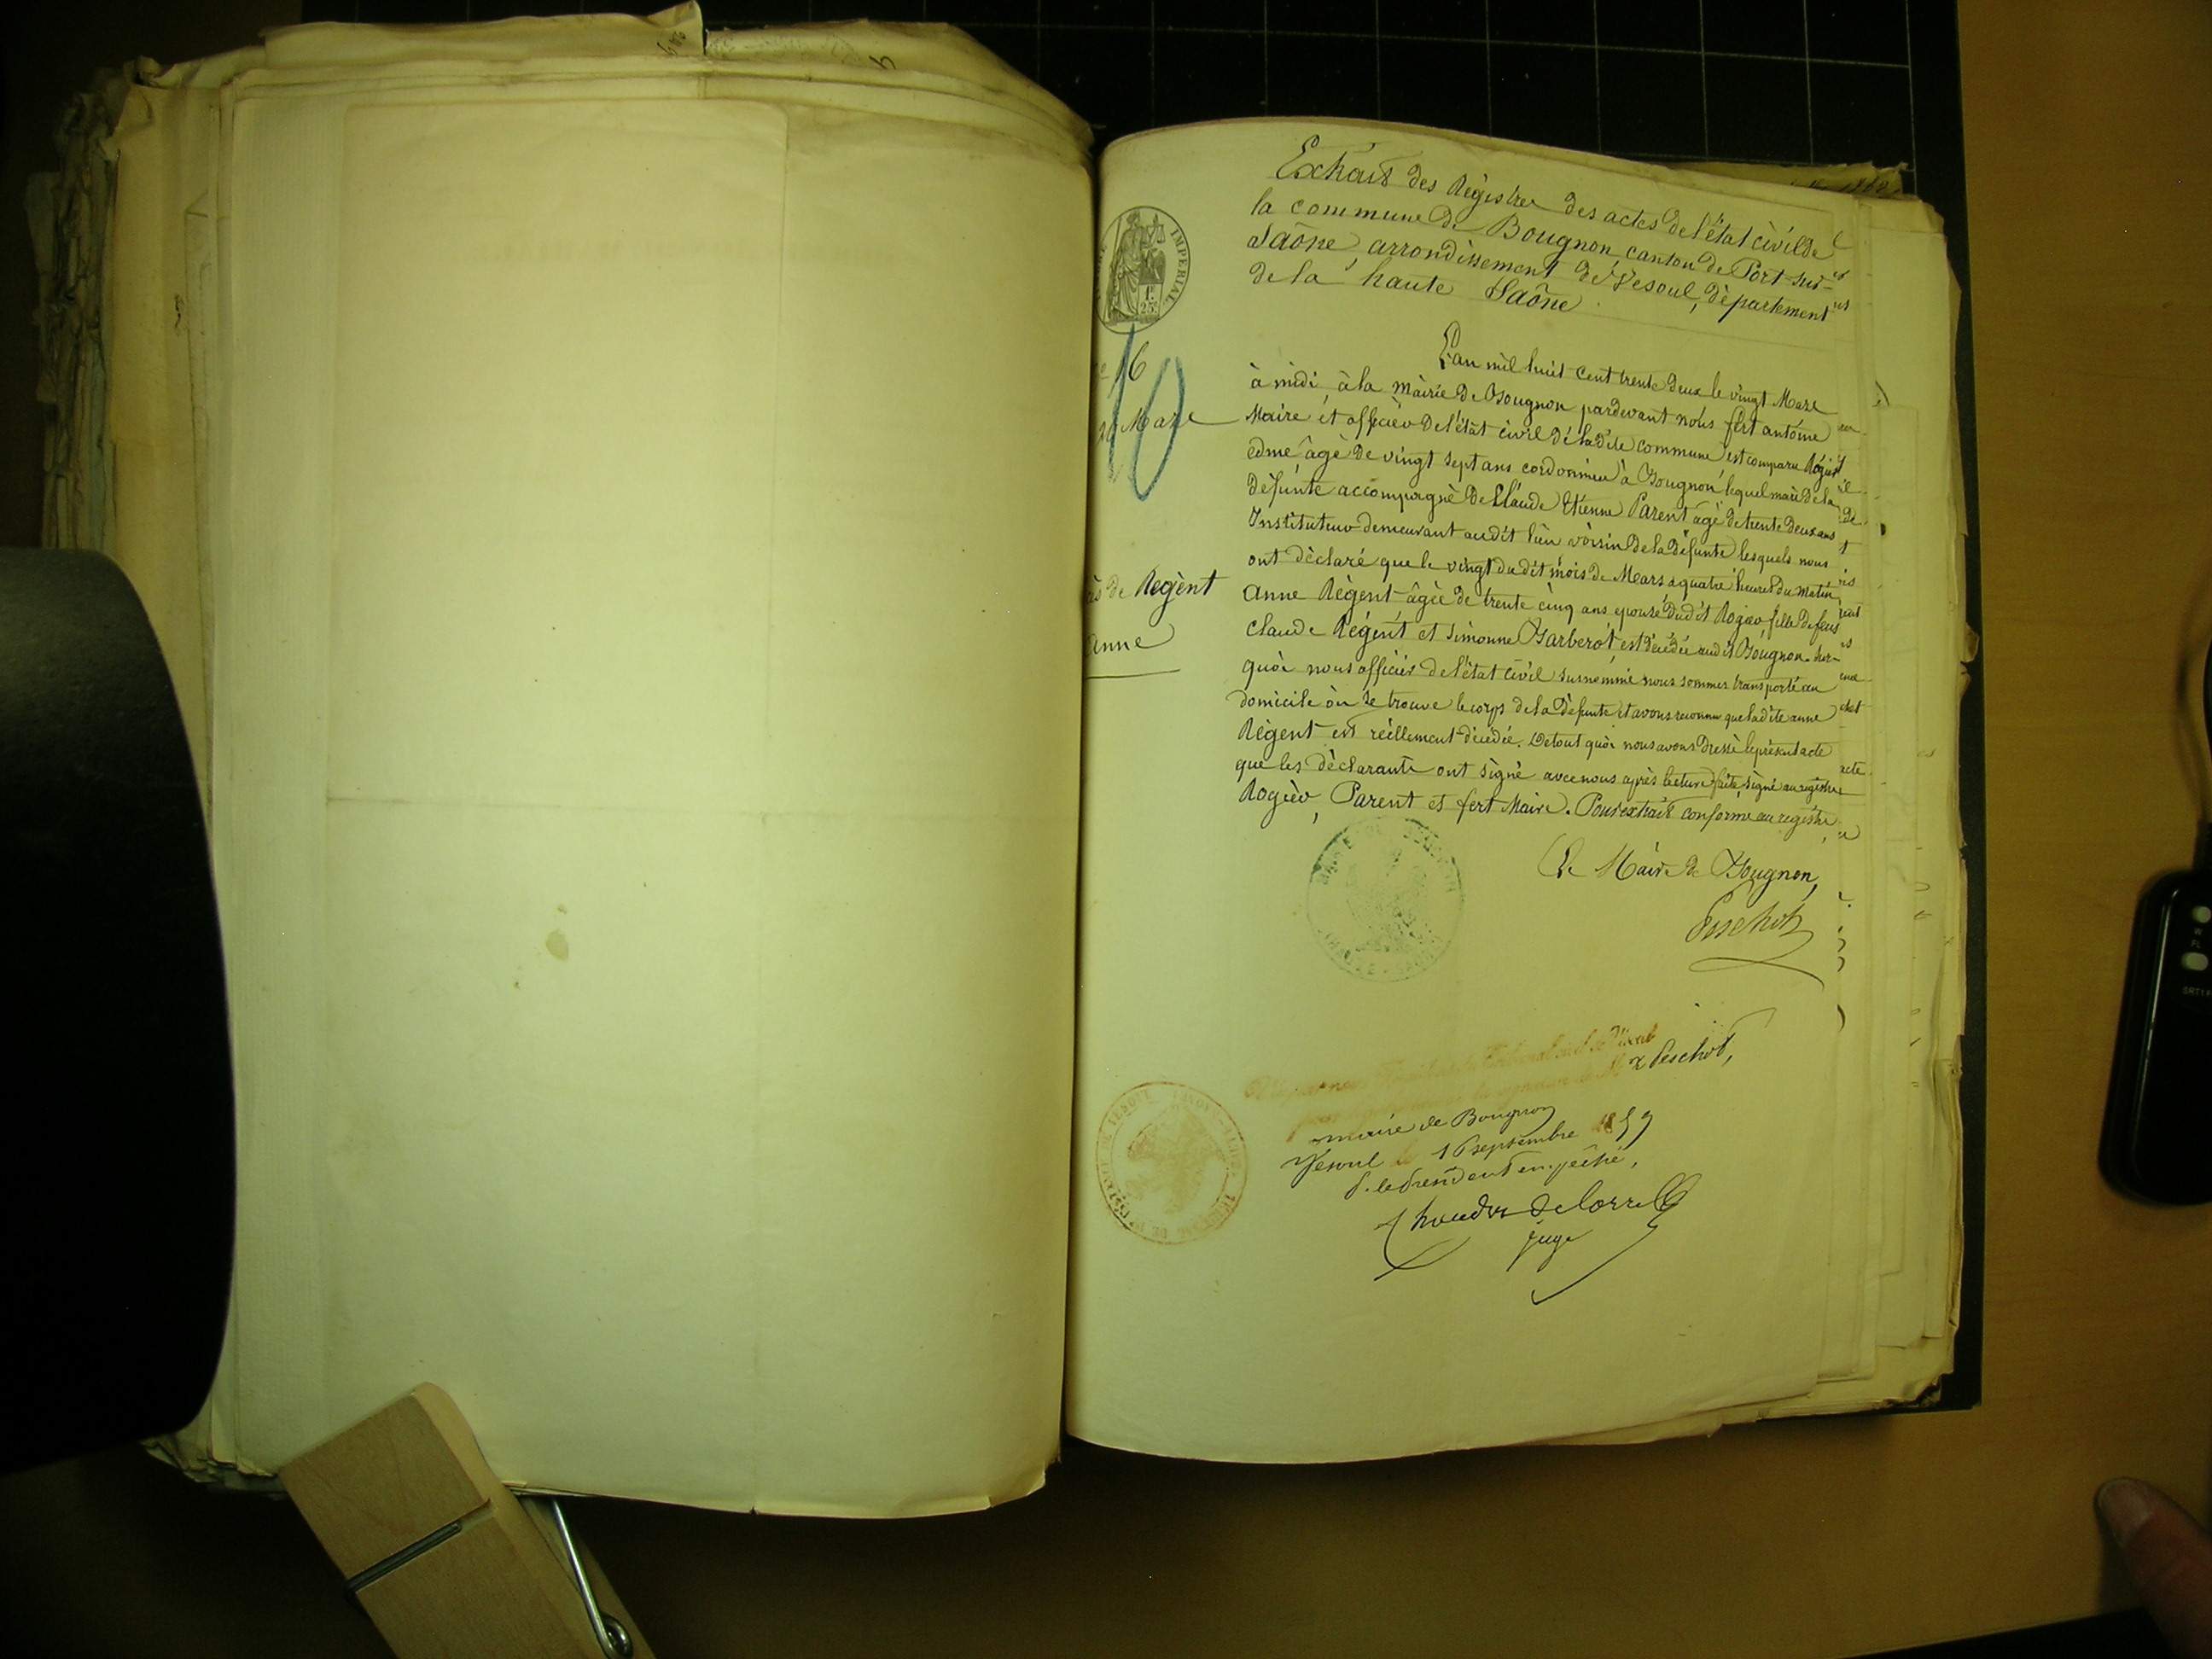 Extrait des Registres des actes de l'état civil de
la commune de Bougnon, canton de Port-sur-
Saône, arrondissement de Vesoul, département
de la haute Saône.
IMPERIAL
1f
25c
16
20 Mars
10
L'an mil huit cent trente deux le vingt Mars
à midi, à la mairie de Bougnon pardevant nous fert antoine
Maire et officier de l'état civil de ladite commune est comparu Rogier
edme âgé de vingt sept ans cordonnier à Bougnon lequel mari de la
défunte accompagné de Claude Etienne Parent âgé de trente deux ans
Instituteur demeurant audit lieu voisin de la défunte lesquels nous
ont déclaré que le vingt dudit mois de Mars à quatre heures du matin
Anne Régent âgée de trente cinq ans épouse dudit Rogier fille de feus
Claude Régent et Simonne Barberot est décédée audit Bougnon. Sur-
quoi nous officier de l'état civil susnommé nous sommes transporté au
domicile où se trouve le corps de la défunte et avons reconnu que ladite anne
Régent est réellement décédée. De tout quoi nous avons dressé le présent acte
que les déclarants ont signé avec nous après lecture faite, signé au registre
Rogier, Parent et fert Maire. Pour extrait conforme au registre
ès de Regènt
Anne
Le Maire de Bougnon,
Peschot
x Peschot,
maire de Bougnon
Vesoul le 16 septembre 1859
P. le Président empêché,
juge